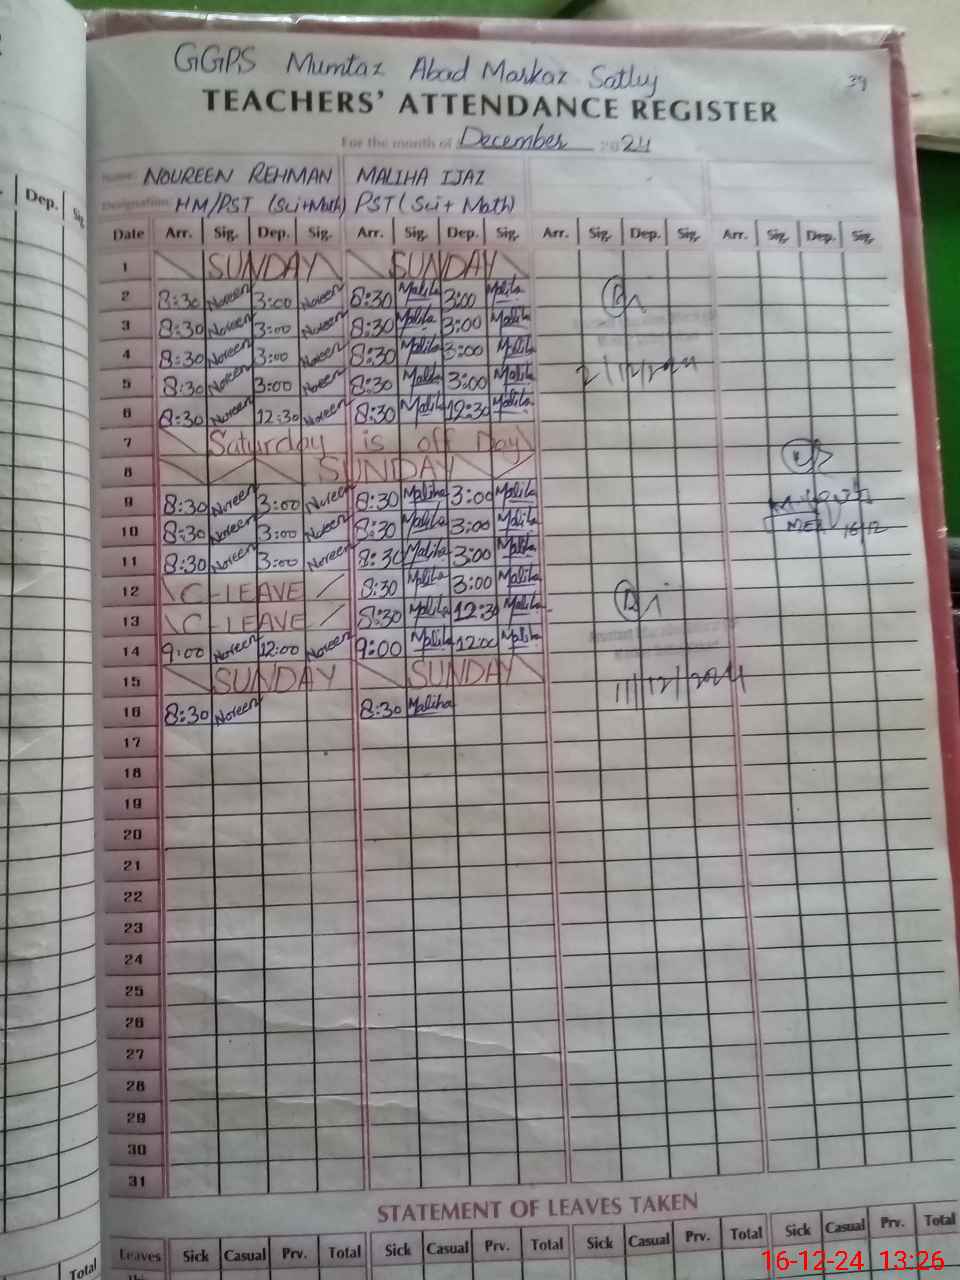 GGPS Mumtaz Abad Markaz Satluj
39
TEACHERS' ATTENDANCE REGISTER
For the month of December 2024
Name: NOUREEN REHMAN MALIHA IJAZ
Designation: HM/PST (Sci+Math) PST (Sci+ Math)
Dep. Sig.
Date Arr. Sig. Dep. Sig. Arr. Sig. Dep. Sig. Arr. Sig. Dep. Sig. Arr. Sig. Dep. Sig.
1 SUNDAY SUNDAY
2 8:30 Noreen 3:00 Noreen 8:30 Maliha 3:00 Maliha
3 8:30 Noreen 3:00 Noreen 8:30 Maliha 3:00 Maliha
4 8:30 Noreen 3:00 Noreen 8:30 Maliha 3:00 Maliha
5 8:30 Noreen 3:00 Noreen 8:30 Maliha 3:00 Maliha 2/12/2024
6 8:30 Noreen 12:30 Noreen 8:30 Maliha 12:30 Maliha
7 Saturday is off Day
8 SUNDAY
9 8:30 Noreen 3:00 Noreen 8:30 Maliha 3:00 Maliha
10 8:30 Noreen 3:00 Noreen 8:30 Maliha 3:00 Maliha 16/12
11 8:30 Noreen 3:00 Noreen 8:30 Maliha 3:00 Maliha
12 C-LEAVE 8:30 Maliha 3:00 Maliha
13 C-LEAVE 8:30 Maliha 12:30 Maliha
14 9:00 Noreen 12:00 Noreen 9:00 Maliha 12:00 Maliha
15 SUNDAY SUNDAY 11/12/2024
16 8:30 Noreen 8:30 Maliha
17
18
19
20
21
22
23
24
25
26
27
28
29
30
31
STATEMENT OF LEAVES TAKEN
Leaves Sick Casual Prv. Total Sick Casual Prv. Total Sick Casual Prv. Total Sick Casual Prv. Total
Total
16-12-24 13:26